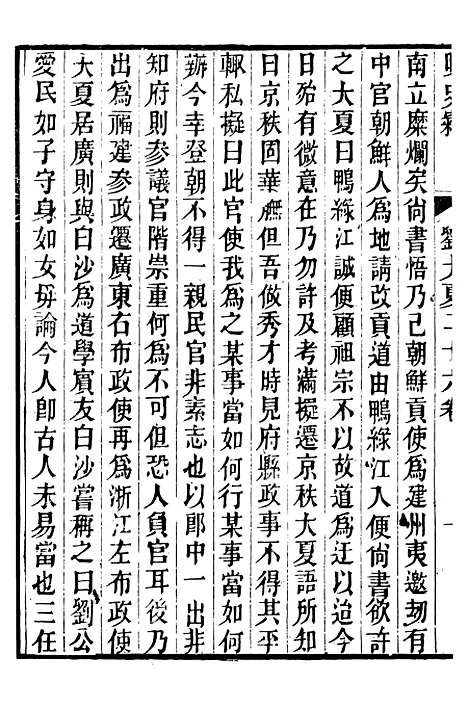 劉大夏二十六卷
南立糜爛矣尚書悟乃已朝鮮貢使爲建州夷邀刼有
中官朝鮮人爲地請改貢道由鴨綠江入便尚書欲許
之大夏曰鴨綠江誠便顧祖宗不以故道爲迂以迨今
日殆有微意在乃勿許及考滿擬遷京秩大夏語所知
曰京秩固華膴但吾做秀才時見府縣政事不得其平
輒私擬曰此官使我爲之某事當如何行某事當如何
辦今幸登朝不得一親民官非素志也以郎中一出非
知府則參議官階崇重何爲不可但恐人負官耳後乃
出爲福建參政遷廣東右布政使再爲浙江左布政使
大夏居廣則與白沙爲道學賓友白沙嘗稱之曰劉公
愛民如子守身如女毋論今人卽古人未易當也三任